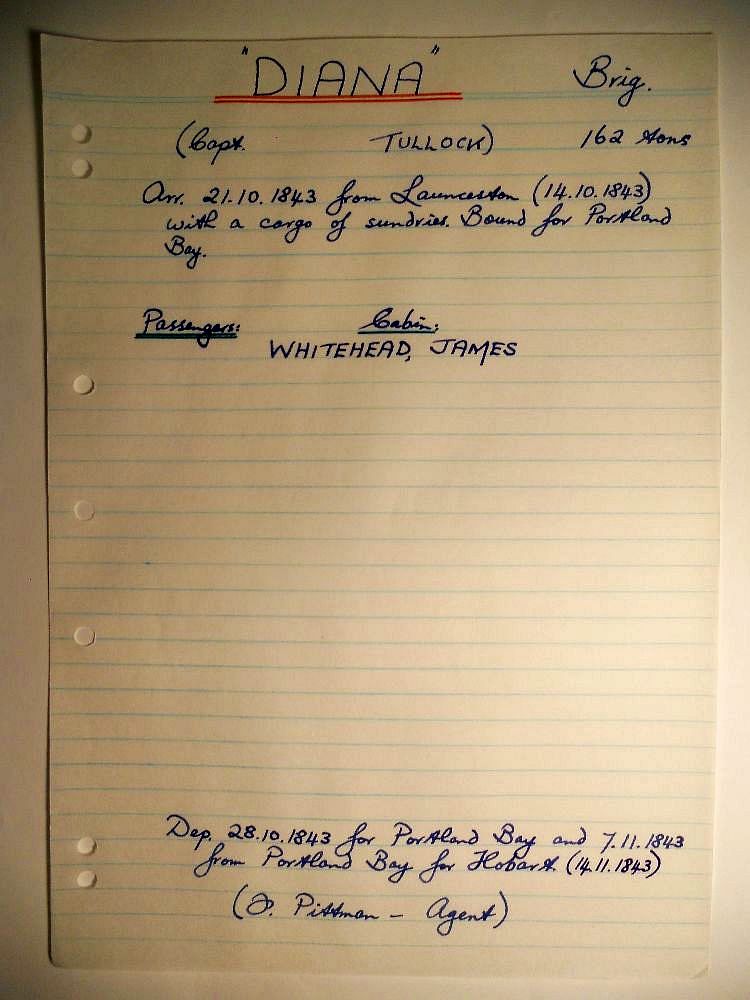 "DIANA" Brig.
(Capt. TULLOCK) 162 tons
Arr. 21.10.1843 from Launceston (14.10.1843)
with a cargo of sundries. Bound for Portland
Bay.
Passengers: Cabin:
WHITEHEAD, JAMES
Dep. 28.10.1843 for Portland Bay and 7.11.1843
from Portland Bay for Hobart (14.11.1843)
Pittman - Agent)